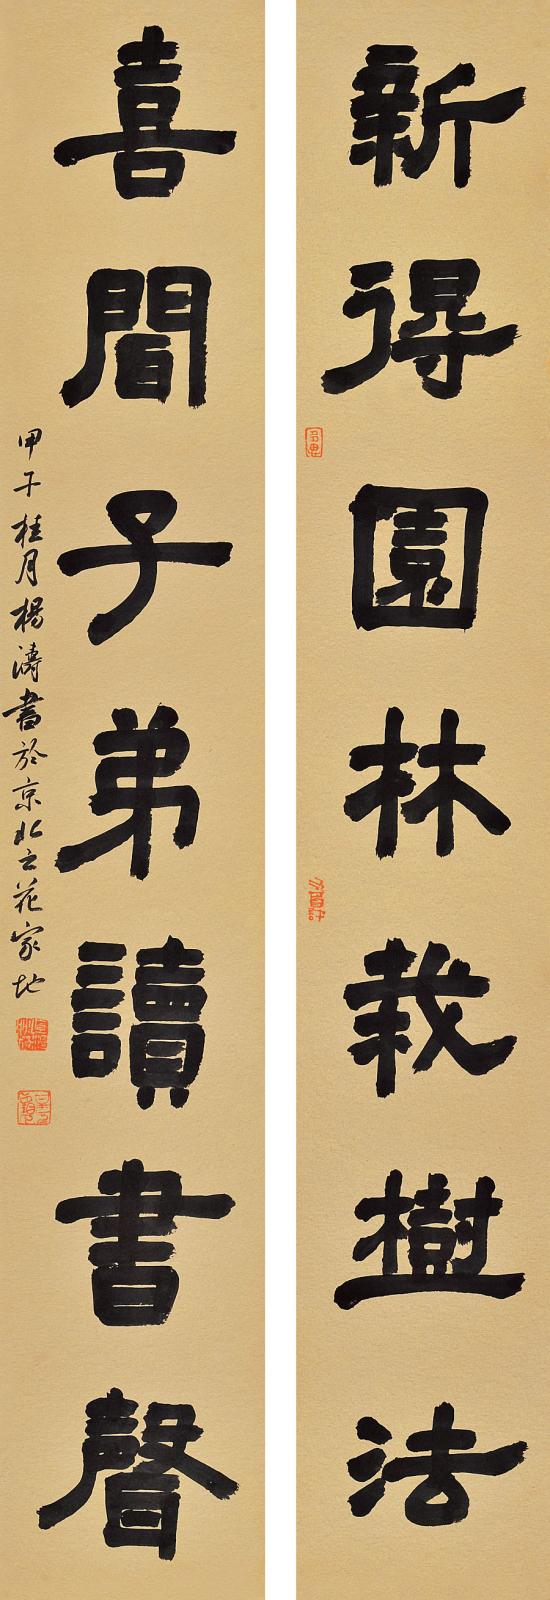 新得園林栽樹法
喜聞子弟讀書聲
甲子桂月楊濤書於京北之花家地